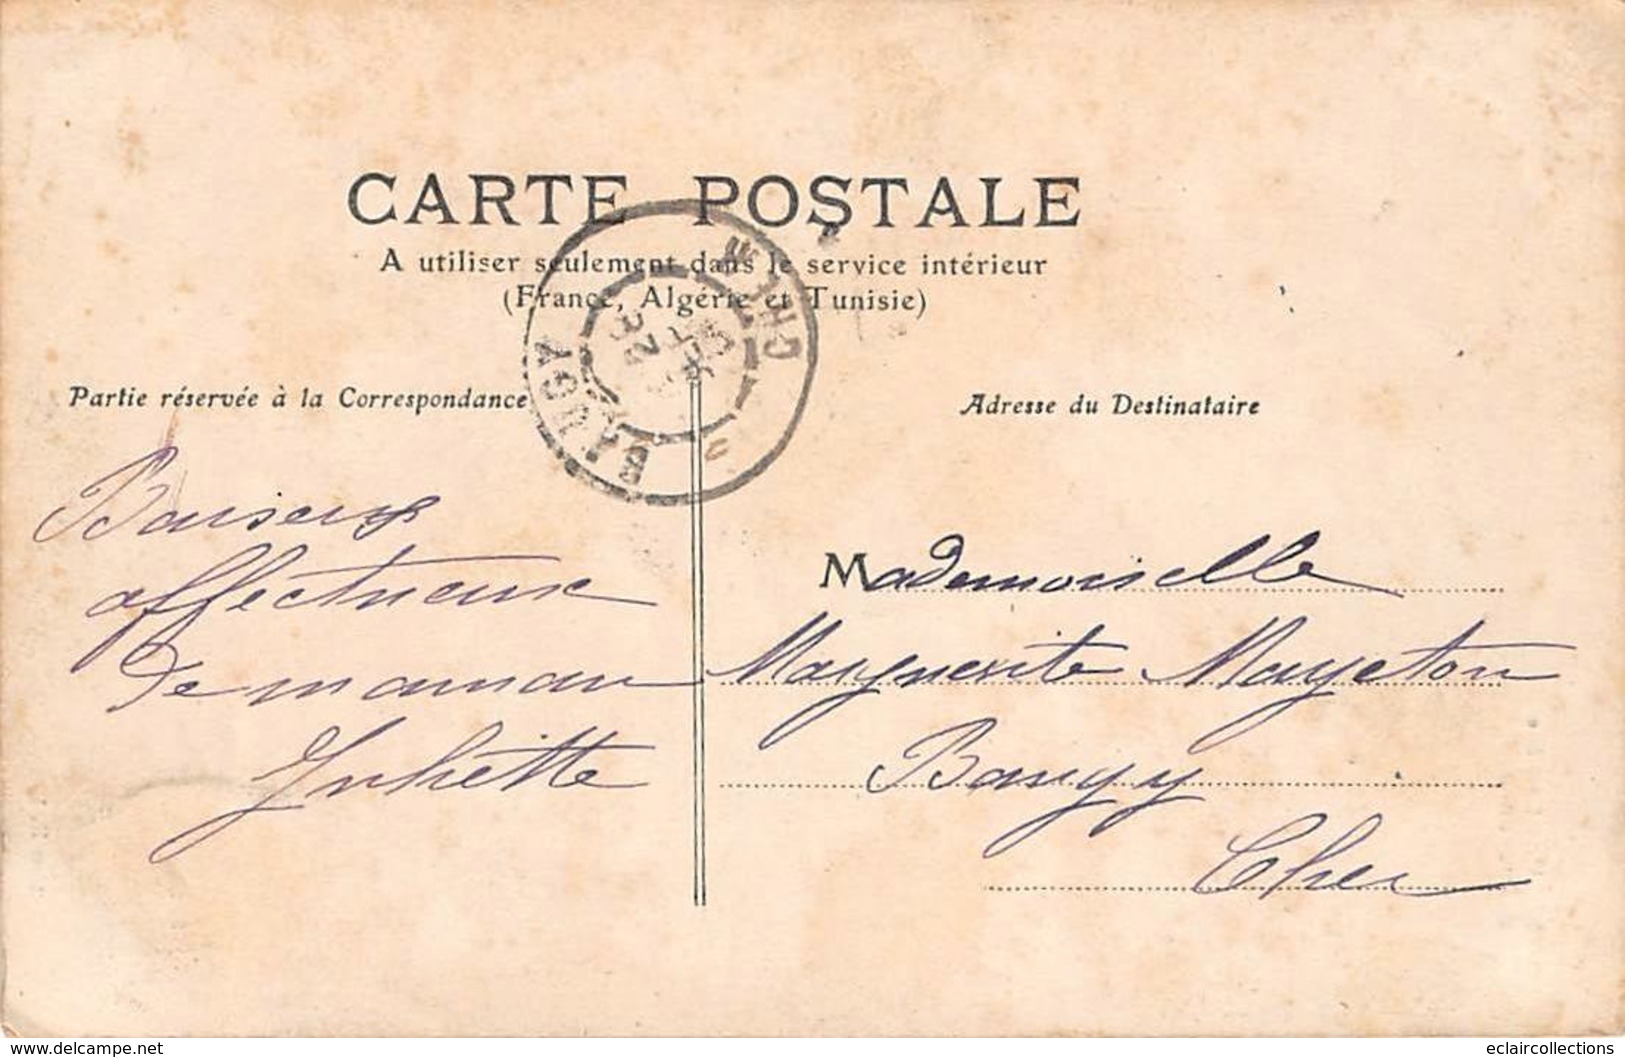 CARTE POSTALE
A utiliser seulement dans le service intérieur
(France, Algérie et Tunisie)
BAUGY
CHER
23
Partie réservée à la Correspondance
Adresse du Destinataire
Baisers
affectueux
de maman
Juliette
Mademoiselle
Marguerite Mayeton
Baugy
Cher
www.delcampe.net
eclaircollections